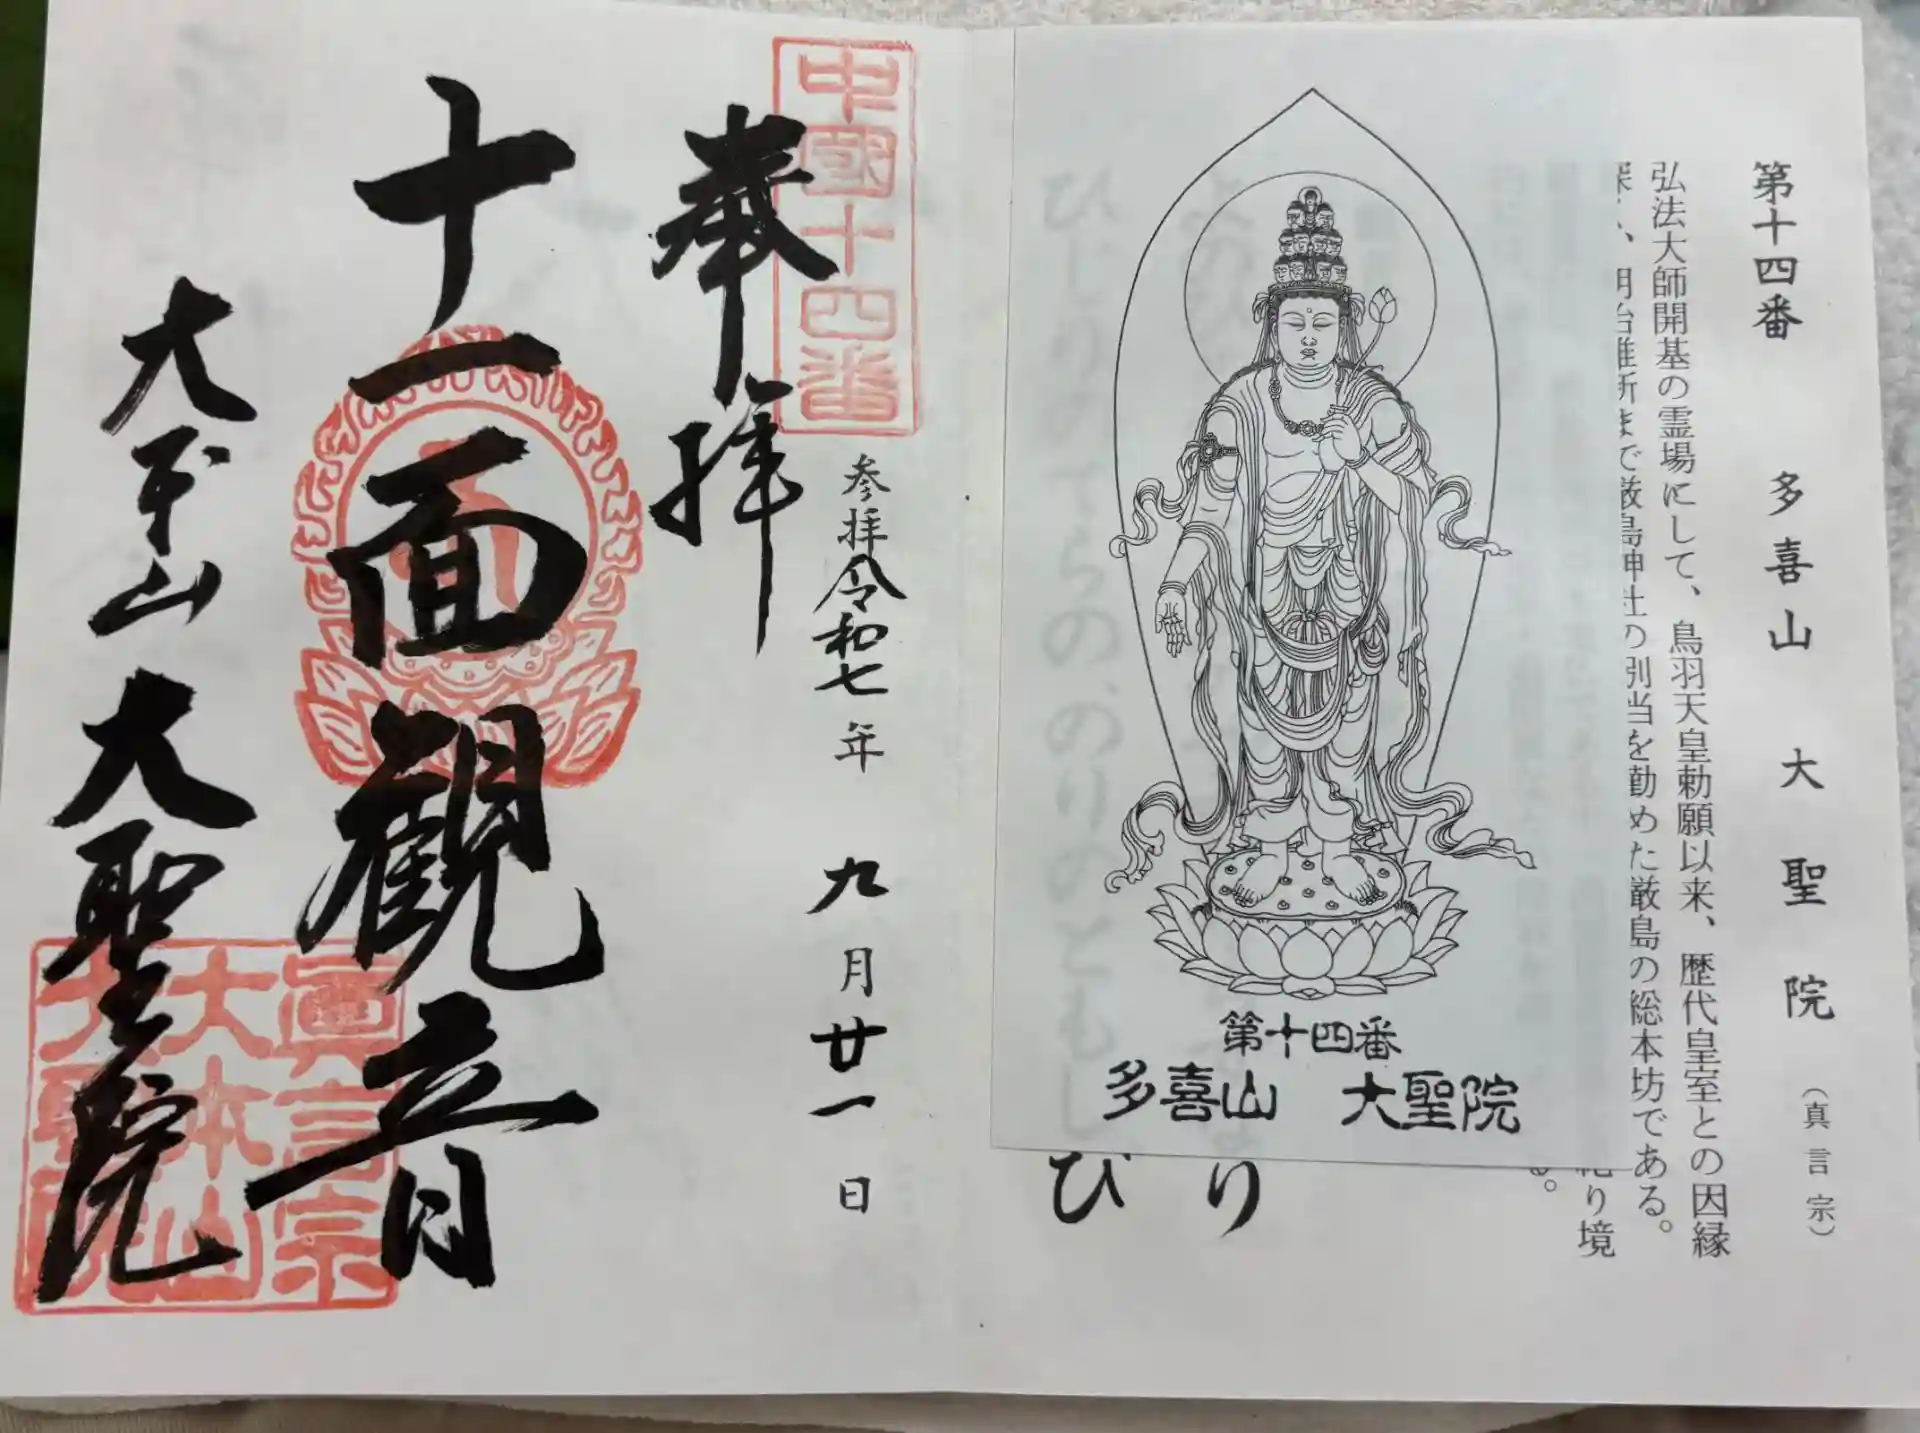 第十四番 多喜山 大聖院 （真言宗）
弘法大師開基の霊場にして、鳥羽天皇勅願以来、歴代皇室との因縁
深く、明治維新まで厳島神社の別当を勤めた厳島の総本坊である。
り境
る。
第十四番
多喜山 大聖院
り
び
中國十四番
奉拝
参拝令和七年 九月廿一日
十一面観音
大本山 大聖院
眞言宗
大本山
大聖院